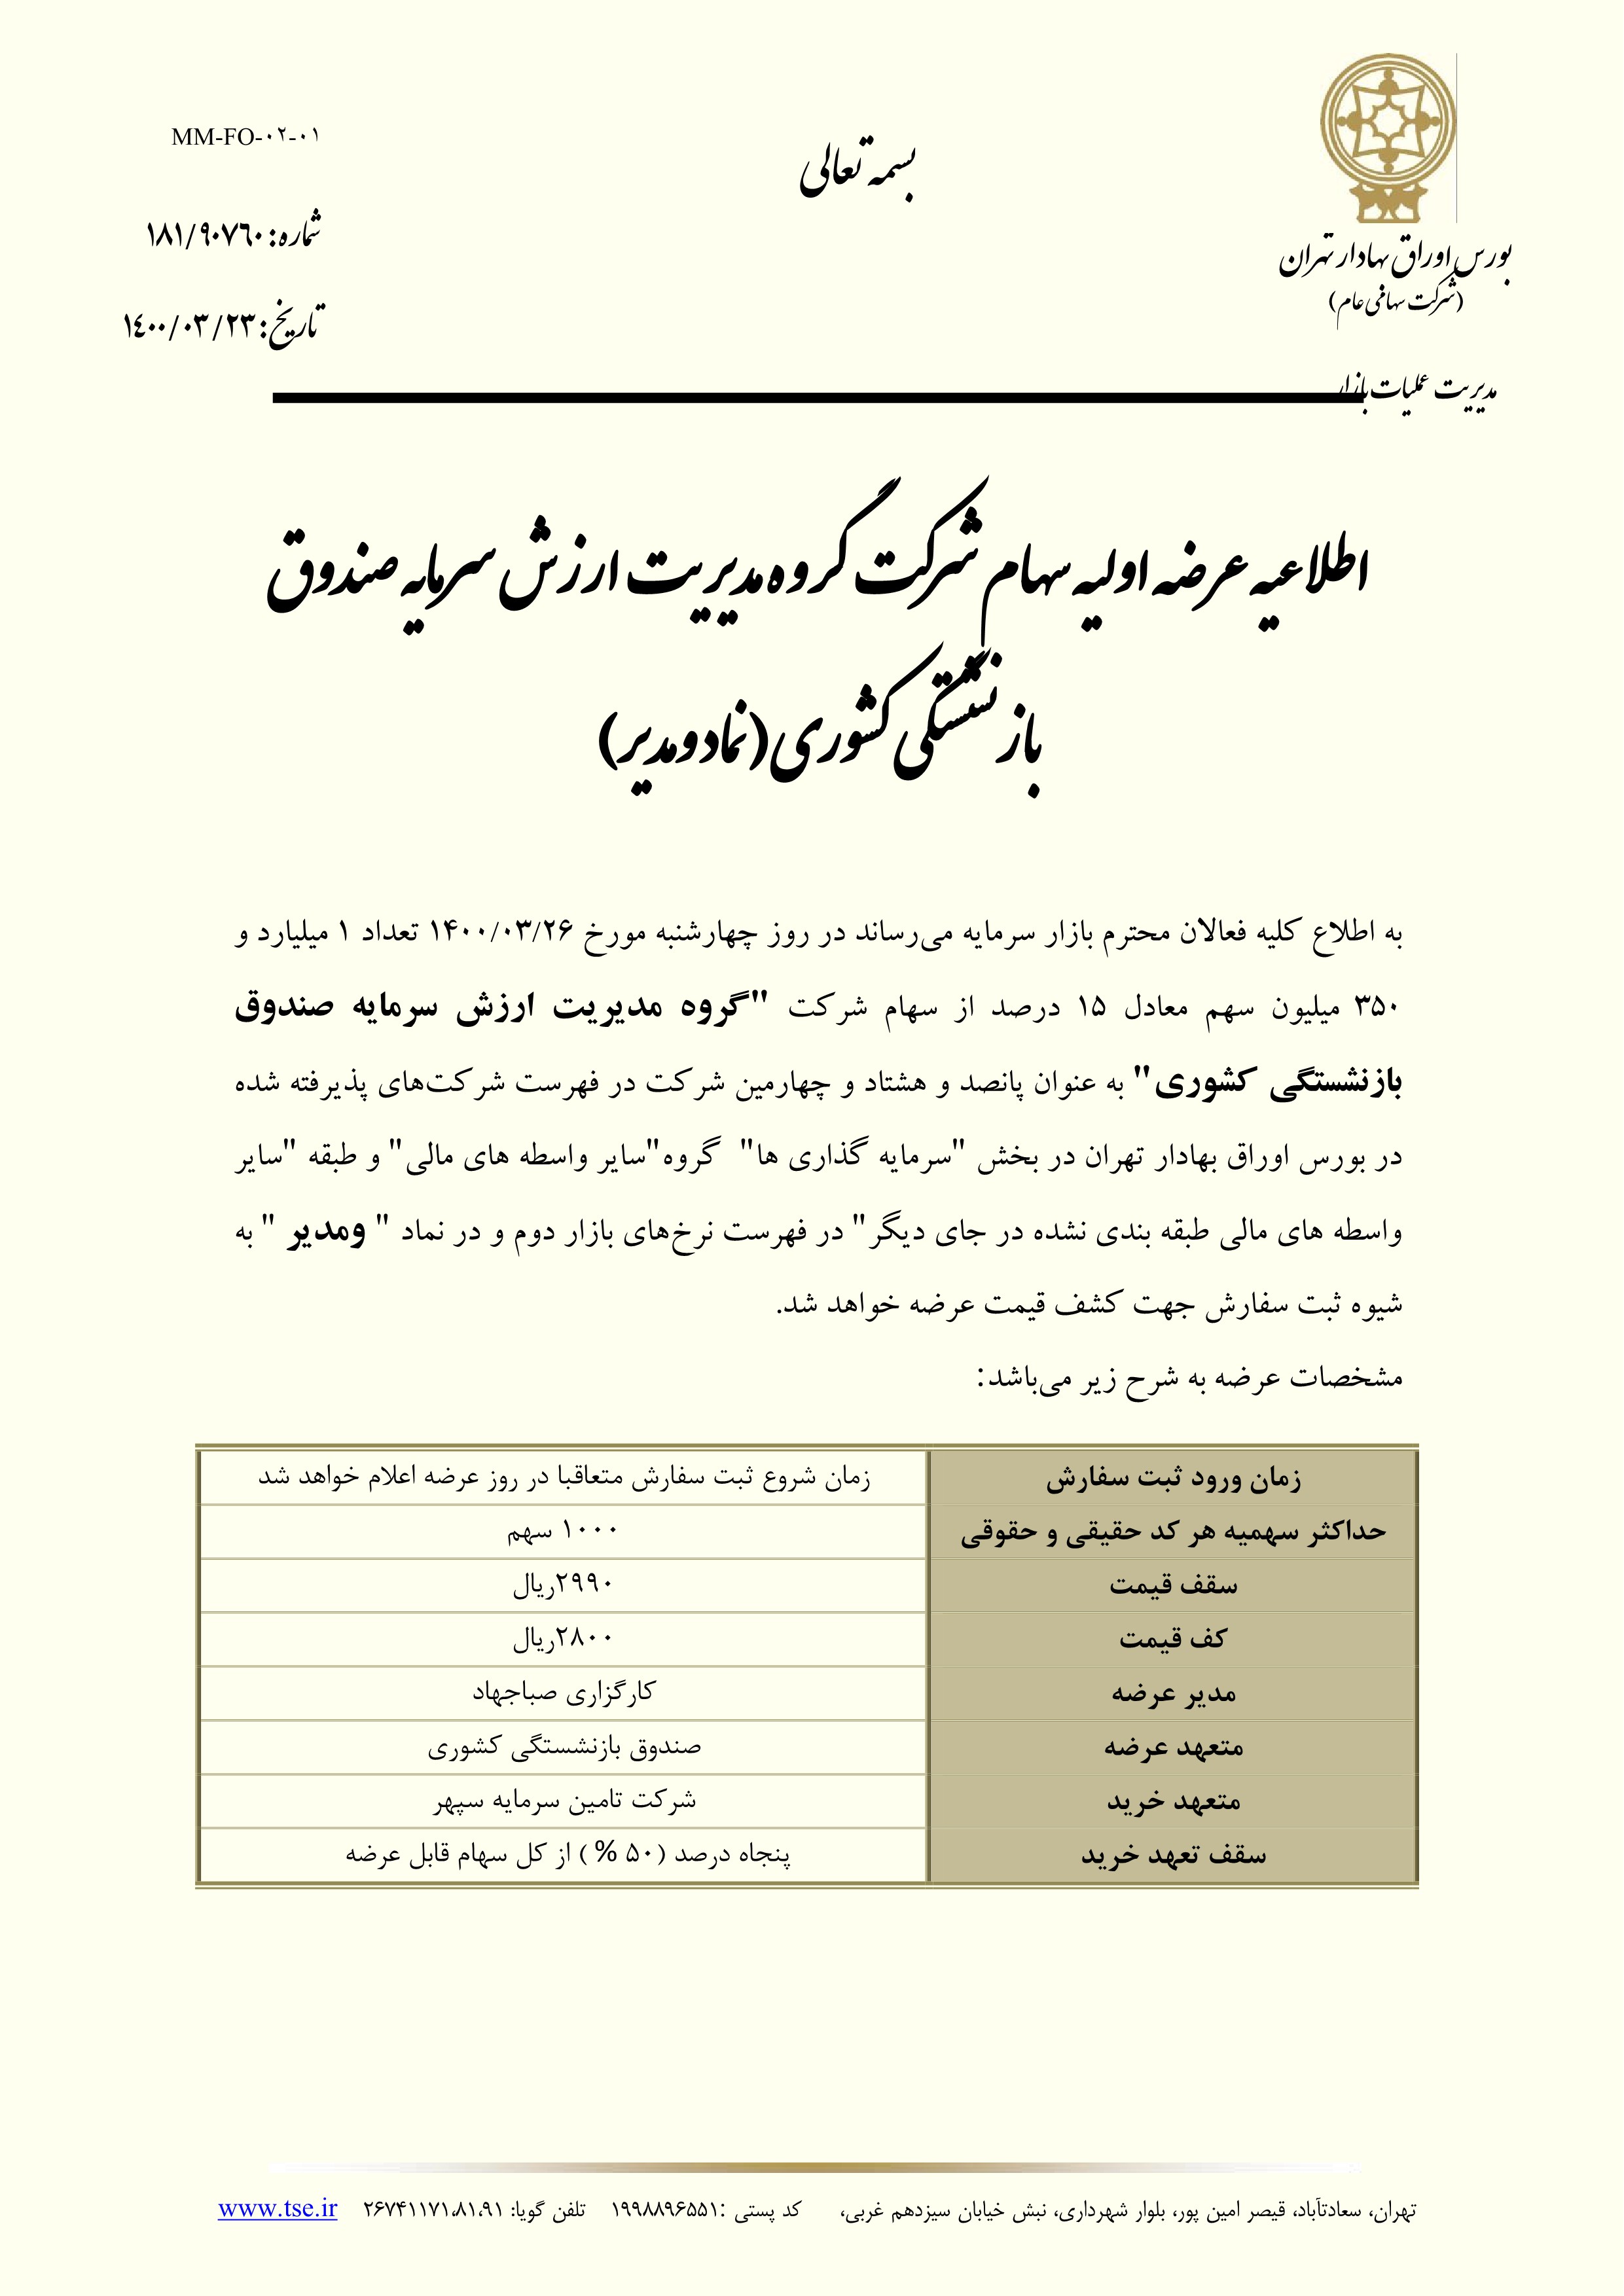 MM-FO-۰۲-۰۱
بسمه تعالی
شماره: ۱۸۱/۹۰۷۶۰
بورس اوراق بهادار تهران
(شرکت سهامی عام)
تاریخ: ۱۴۰۰/۰۳/۲۳
مدیریت عملیات بازار
اطلاعیه عرضه اولیه سهام شرکت گروه مدیریت ارزش سرمایه صندوق
بازنشستگی کشوری (نماد ومدیر)
به اطلاع کلیه فعالان محترم بازار سرمایه می‌رساند در روز چهارشنبه مورخ ۱۴۰۰/۰۳/۲۶ تعداد ۱ میلیارد و
۳۵۰ میلیون سهم معادل ۱۵ درصد از سهام شرکت "گروه مدیریت ارزش سرمایه صندوق
بازنشستگی کشوری" به عنوان پانصد و هشتاد و چهارمین شرکت در فهرست شرکت‌های پذیرفته شده
در بورس اوراق بهادار تهران در بخش "سرمایه گذاری ها" گروه"سایر واسطه های مالی" و طبقه "سایر
واسطه های مالی طبقه بندی نشده در جای دیگر" در فهرست نرخ‌های بازار دوم و در نماد " ومدیر " به
شیوه ثبت سفارش جهت کشف قیمت عرضه خواهد شد.
مشخصات عرضه به شرح زیر می‌باشد:
زمان ورود ثبت سفارش زمان شروع ثبت سفارش متعاقبا در روز عرضه اعلام خواهد شد
حداکثر سهمیه هر کد حقیقی و حقوقی ۱۰۰۰ سهم
سقف قیمت ۲۹۹۰ریال
کف قیمت ۲۸۰۰ریال
مدیر عرضه کارگزاری صباجهاد
متعهد عرضه صندوق بازنشستگی کشوری
متعهد خرید شرکت تامین سرمایه سپهر
سقف تعهد خرید پنجاه درصد (۵۰ %) از کل سهام قابل عرضه
تهران، سعادت‌آباد، قیصر امین پور، بلوار شهرداری، نبش خیابان سیزدهم غربی، کد پستی :۱۹۹۸۸۹۶۵۵۱ تلفن گویا: ۲۶۷۴۱۱۷۱،۸۱،۹۱ www.tse.ir